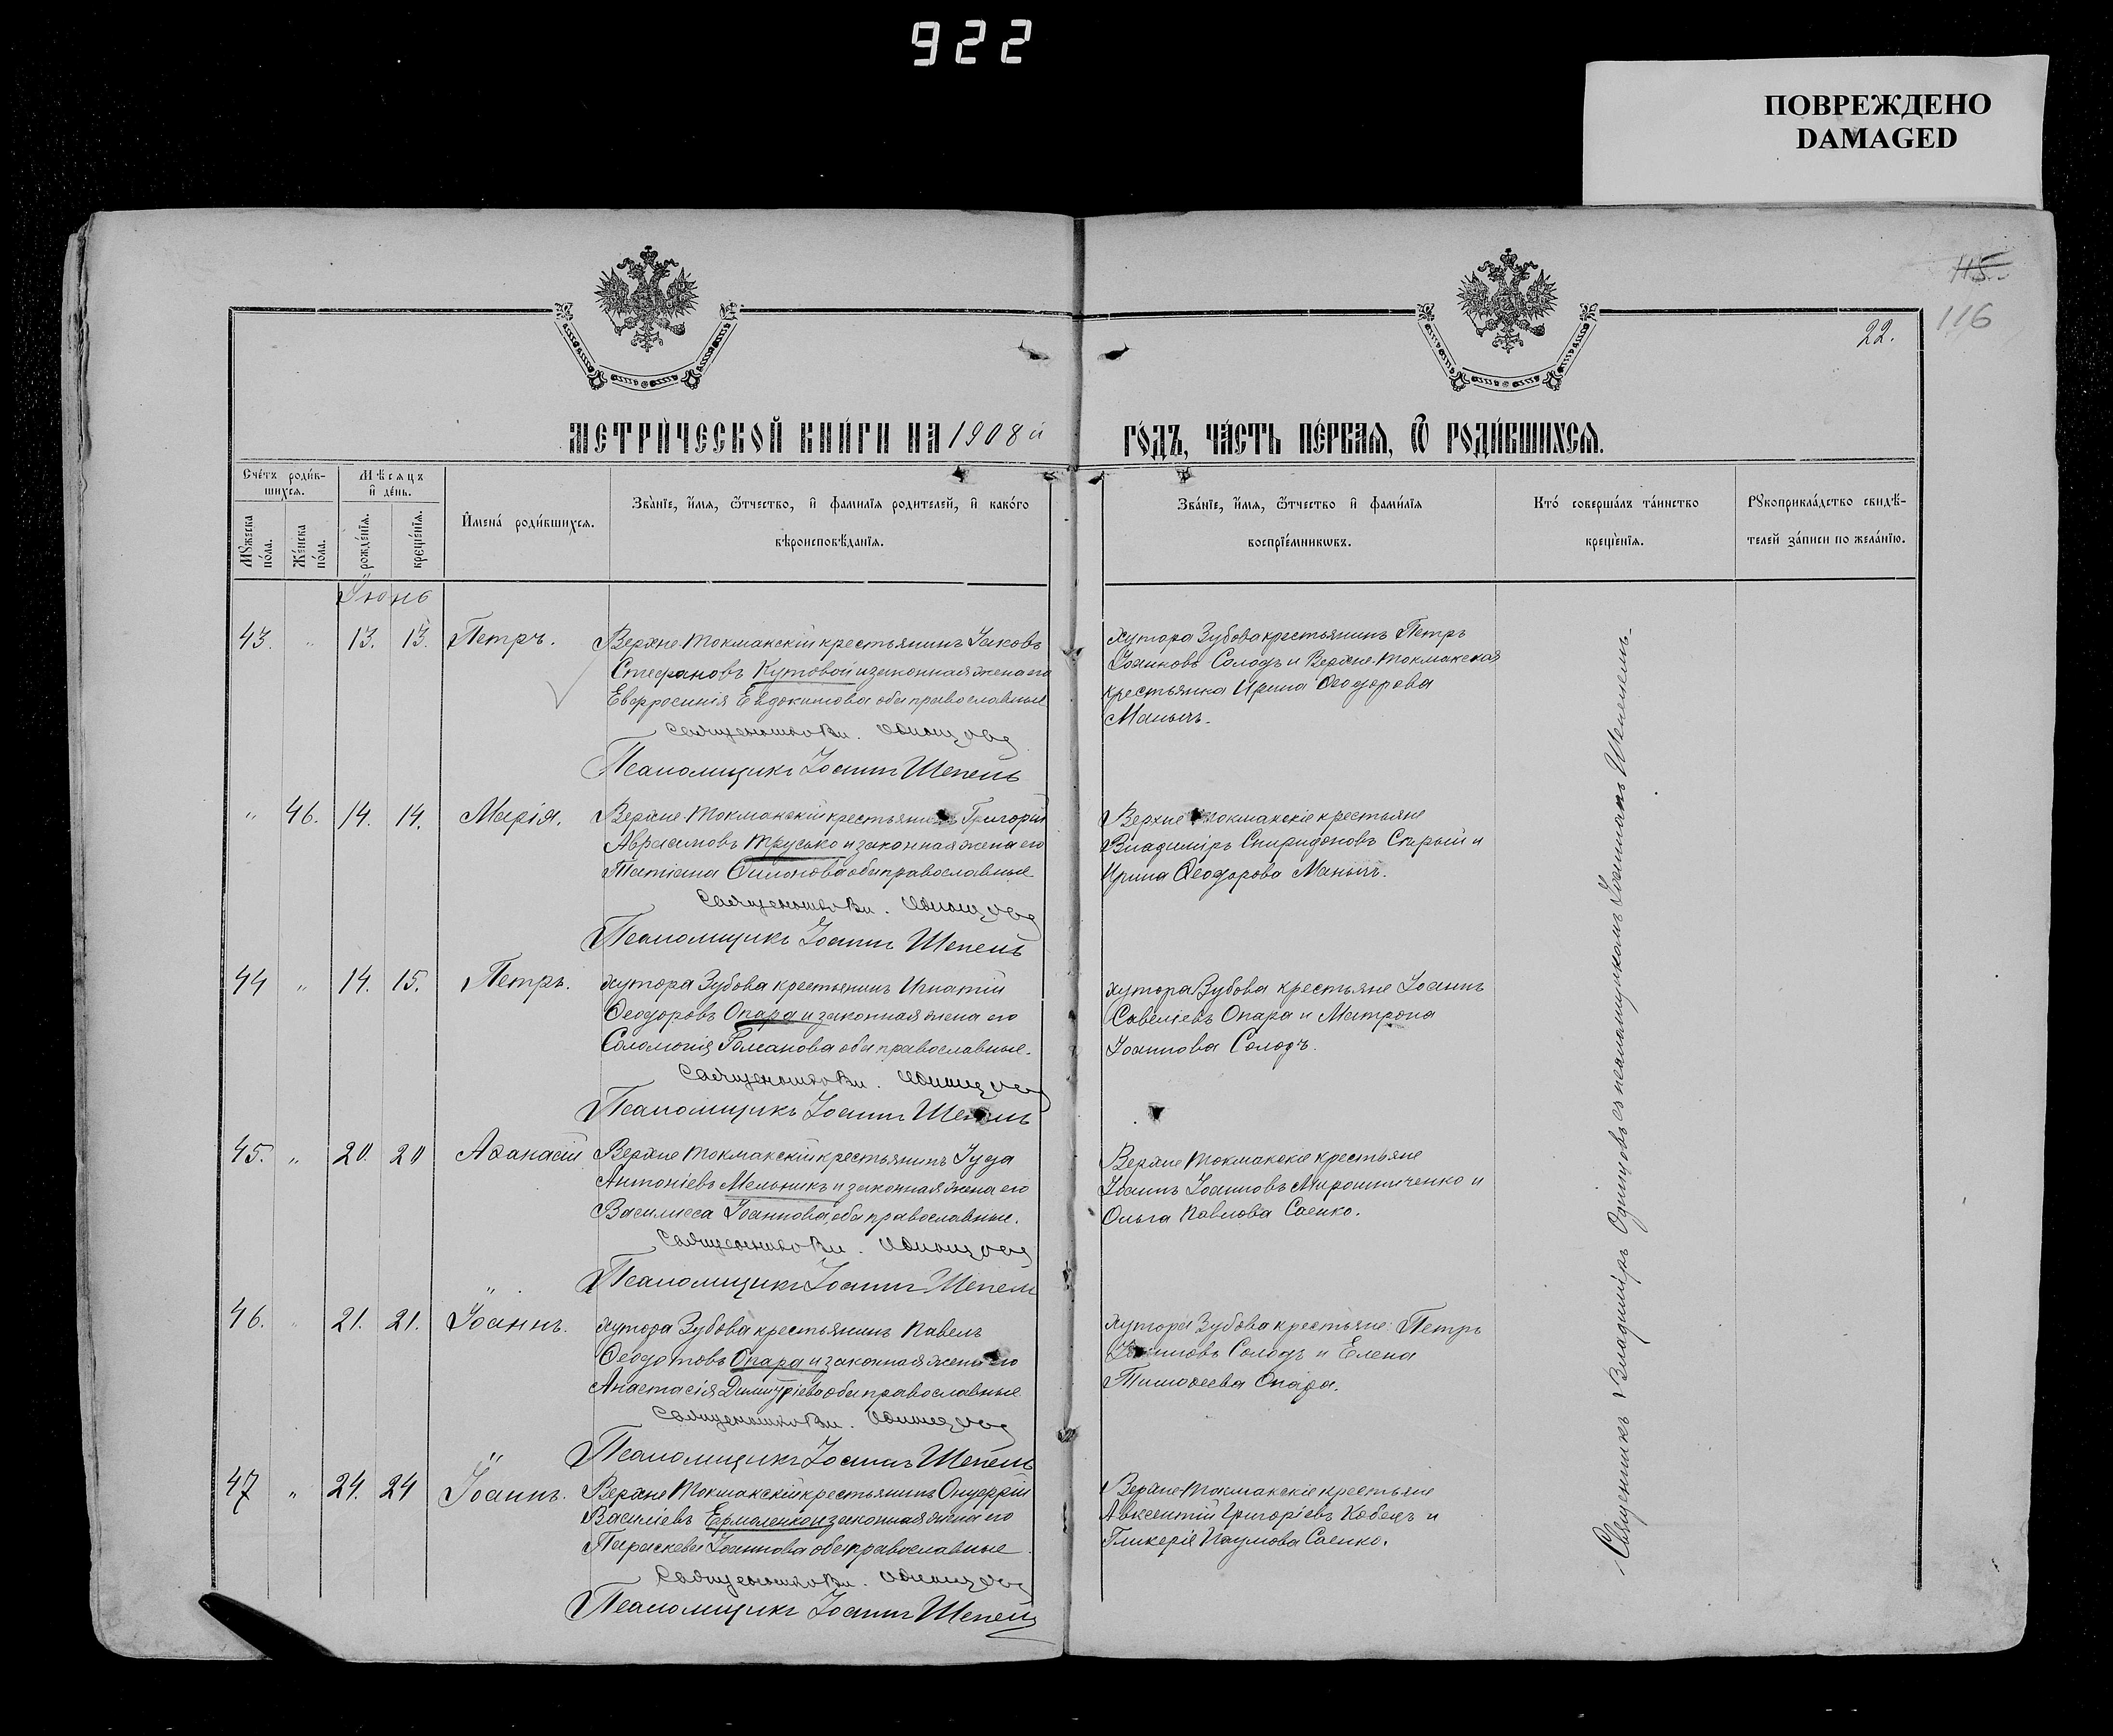 922
ПОВРЕЖДЕНО
DAMAGED
115
116
22.
МЕТРИ́ЧЕСКОЙ КНИ́ГИ НА 1908 й
ГО́ДЪ, ЧА́СТЬ ПЕ́РВАЯ, Ѿ РОДИ́ВШИХСЯ.
Сче́тъ роди́в-
шихся.
Мѣсяцъ
и де́нь.
Мꙋжеска
по́ла.
Же́нска
по́ла.
рожде́нїя.
креще́нїя.
И҆мена́ роди́вшихся.
Зва́нїе, и҆́мя, ѻ҆́тчество, и҆ фами́лїя родителей, и҆ како́го
вѣроисповѣ́данїя.
Зва́нїе, и҆́мя, ѻ҆́тчество и҆ фами́лїя
воспрїе́мниковъ.
Кто̀ соверша́лъ та́инство
креще́нїя.
Рꙋкоприкла́дство свидѣ́-
телей за́писи по жела́нїю.
Іюнь
43. " 13. 13. Петръ.
Верхне Токмакскій крестьянинъ Іаковъ
Стефановъ Кутовой и законная жена его
Евфросинія Евдокимова оба православные
Священникъ Вл. Одинцовъ
Псаломщикъ Іоаннъ Шепель
хутора Зубова крестьянинъ Петръ
Іоанновъ Солодъ и Верхне-Токмакская
крестьянка Ирина Ѳеодорова
Манычъ.
" 46. 14. 14. Марія.
Верхне Токмакскій крестьянинъ Григорій
Авраамовъ Трусько и законная жена его
Татіана Филонова оба православные
Священникъ Вл. Одинцовъ
Псаломщикъ Іоаннъ Шепель
Верхне Токмакскіе крестьяне
Владиміръ Спиридоновъ Старый и
Ирина Ѳеодорова Манычъ.
44 " 14. 15. Петръ.
хутора Зубова крестьянинъ Игнатій
Ѳеодоровъ Опара и законная жена его
Соломонія Романова оба православные.
Священникъ Вл. Одинцовъ
Псаломщикъ Іоаннъ Шепель
хутора Зубова крестьяне Іоаннъ
Савеліевъ Опара и Матрона
Іоаннова Солодъ.
45. " 20. 20 Аѳанасій
Верхне Токмакскій крестьянинъ Іуда
Антоніевъ Мельникъ и законная жена его
Василисса Іоаннова оба православные.
Священникъ Вл. Одинцовъ
Псаломщикъ Іоаннъ Шепель
Верхне Токмакскіе крестьяне
Іоаннъ Іоанновъ Мирошниченко и
Ольга Павлова Саенко.
46. " 21. 21. Іоаннъ.
хутора Зубова крестьянинъ Павелъ
Ѳеодотовъ Опара и законная жена его
Анастасія Димитріева оба православные
Священникъ Вл. Одинцовъ
Псаломщикъ Іоаннъ Шепель
хутора Зубова крестьяне: Петръ
Іоанновъ Солодъ и Елена
Тимоѳеева Опара.
47 " 24. 24 Іоаннъ.
Верхне Токмакскій крестьянинъ Онуфрій
Василіевъ Ермоленко и законная жена его
Параскева Іоаннова оба православные
Священникъ Вл. Одинцовъ
Псаломщикъ Іоаннъ Шепель
Верхне Токмакскіе крестьяне
Авксентій Григоріевъ Кобецъ и
Гликерія Наумова Саенко.
Священникъ Владиміръ Одинцовъ съ псаломщикомъ Іоанномъ Шепелемъ.